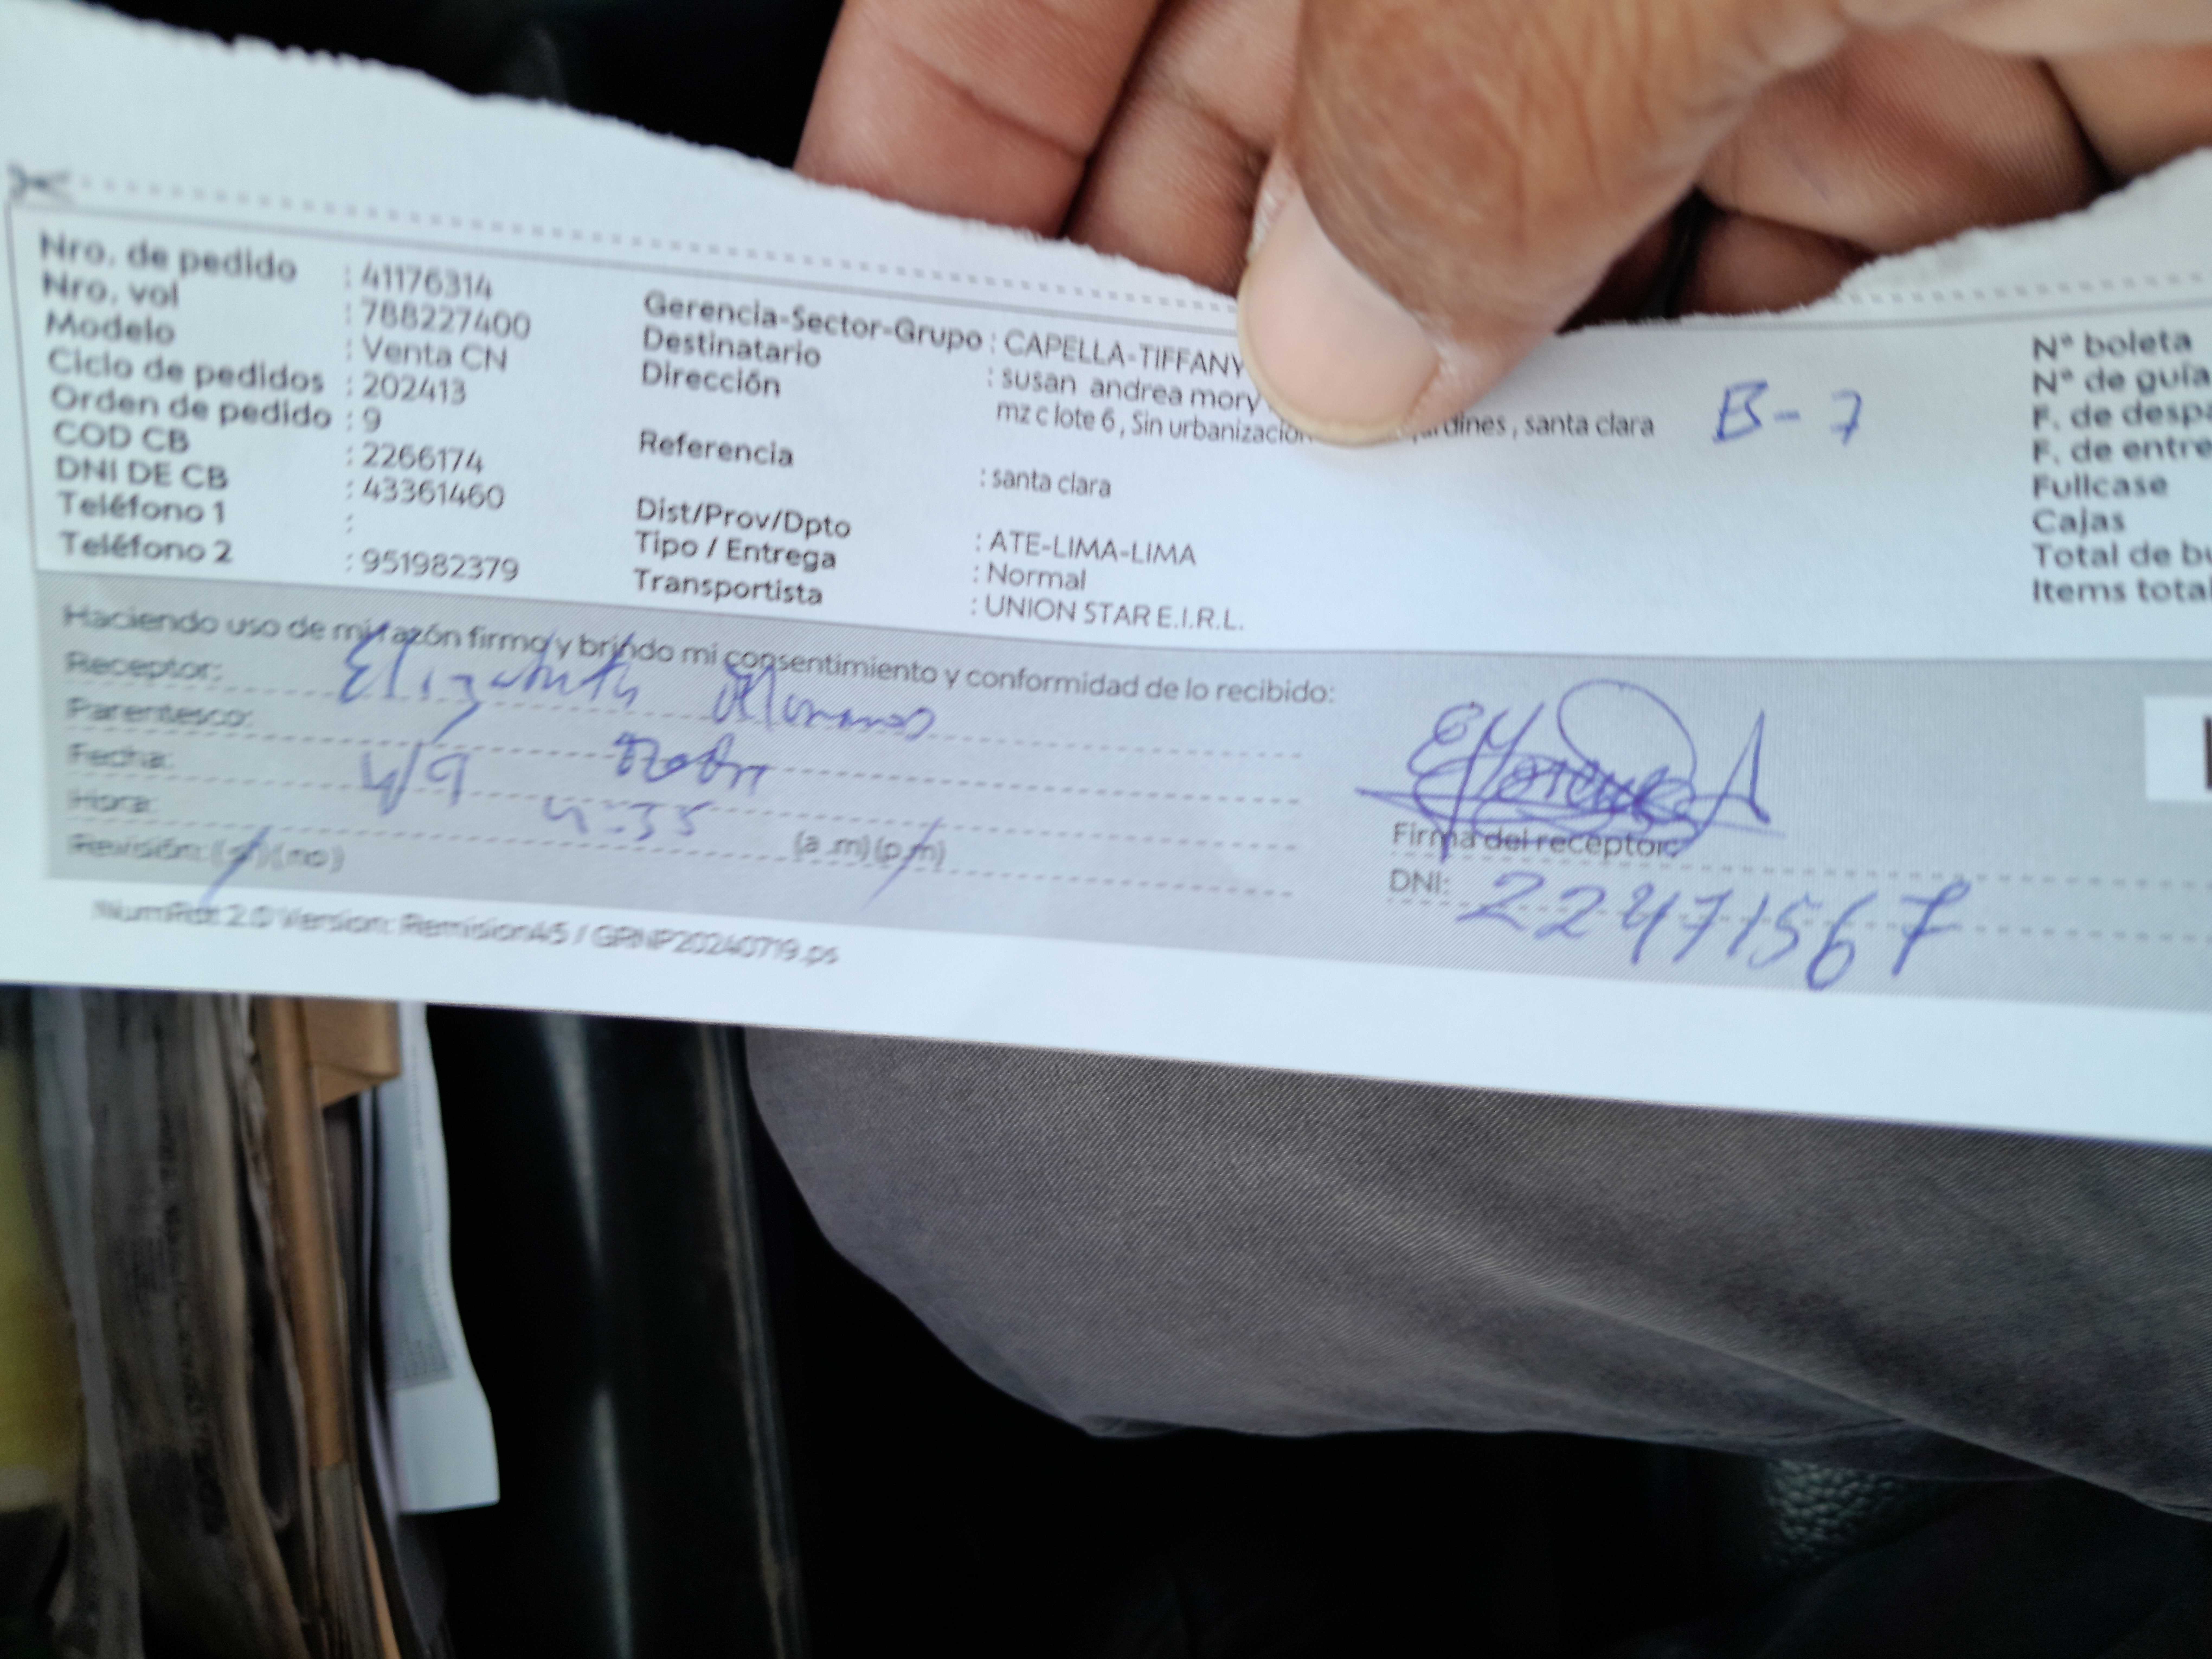 Nro. de pedido : 41176314
Nro. vol : 788227400
Modelo : Venta CN
Ciclo de pedidos : 202413
Orden de pedido : 9
COD CB : 2266174
DNI DE CB : 43361460
Teléfono 1 :
Teléfono 2 : 951982379
Gerencia-Sector-Grupo : CAPELLA-TIFFANY
Destinatario : susan andrea mory
Dirección mz c lote 6 , Sin urbanización jardines , santa clara B-7
Referencia : santa clara
Dist/Prov/Dpto : ATE-LIMA-LIMA
Tipo / Entrega : Normal
Transportista : UNION STAR E.I.R.L.
N° boleta
N° de guía
F. de desp
F. de entre
Fullcase
Cajas
Total de bu
Items total
Haciendo uso de mi razón firmo y brindo mi consentimiento y conformidad de lo recibido:
Receptor: Elizabeth
Parentesco:
Fecha: 4/9
Hora: 4:35 (a .m) (p.m)
Revisión: (si) (no)
Firma del receptor:
DNI: 22471567
NumRot 2.0 Version: RemisionA5 / GRNP20240719.ps